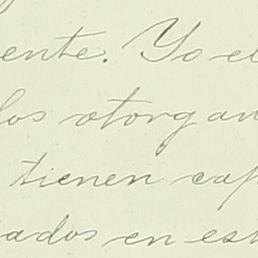 ente. Yo el
los otorgan
tienen cap
ados en est